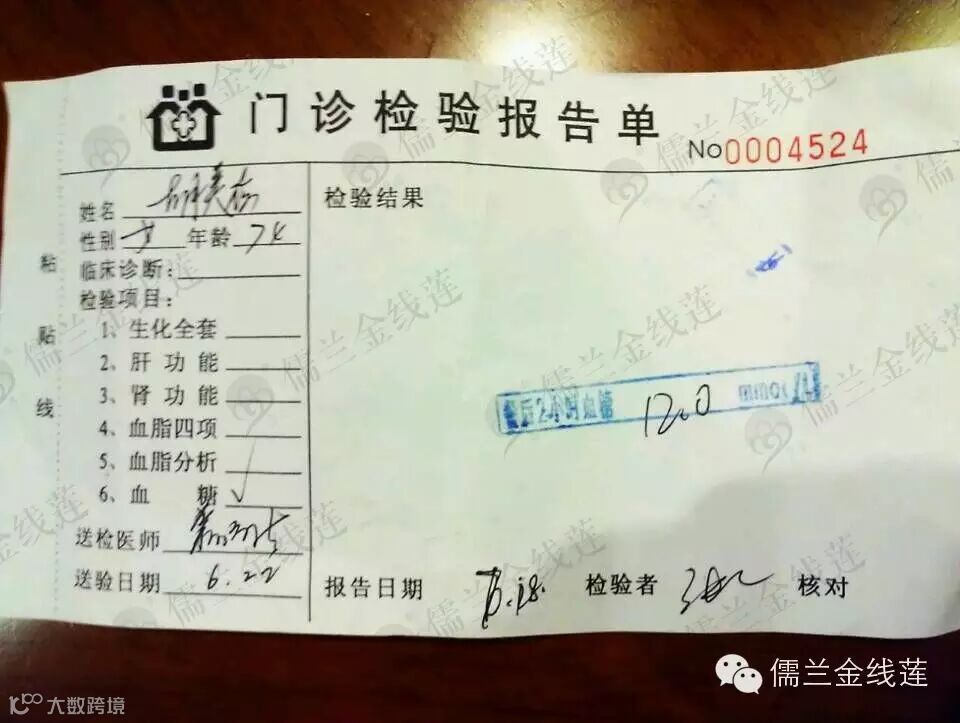 门诊检验报告单
No0004524
姓名
性别 女 年龄 74
临床诊断:
检验项目:
1、生化全套
2、肝功能
3、肾功能
4、血脂四项
5、血脂分析
6、血糖 ✓
送检医师
送验日期 6.22
粘贴线
检验结果
餐后2小时血糖 12.0 mmol/L
报告日期
检验者
核对
儒兰金线莲
大数跨境